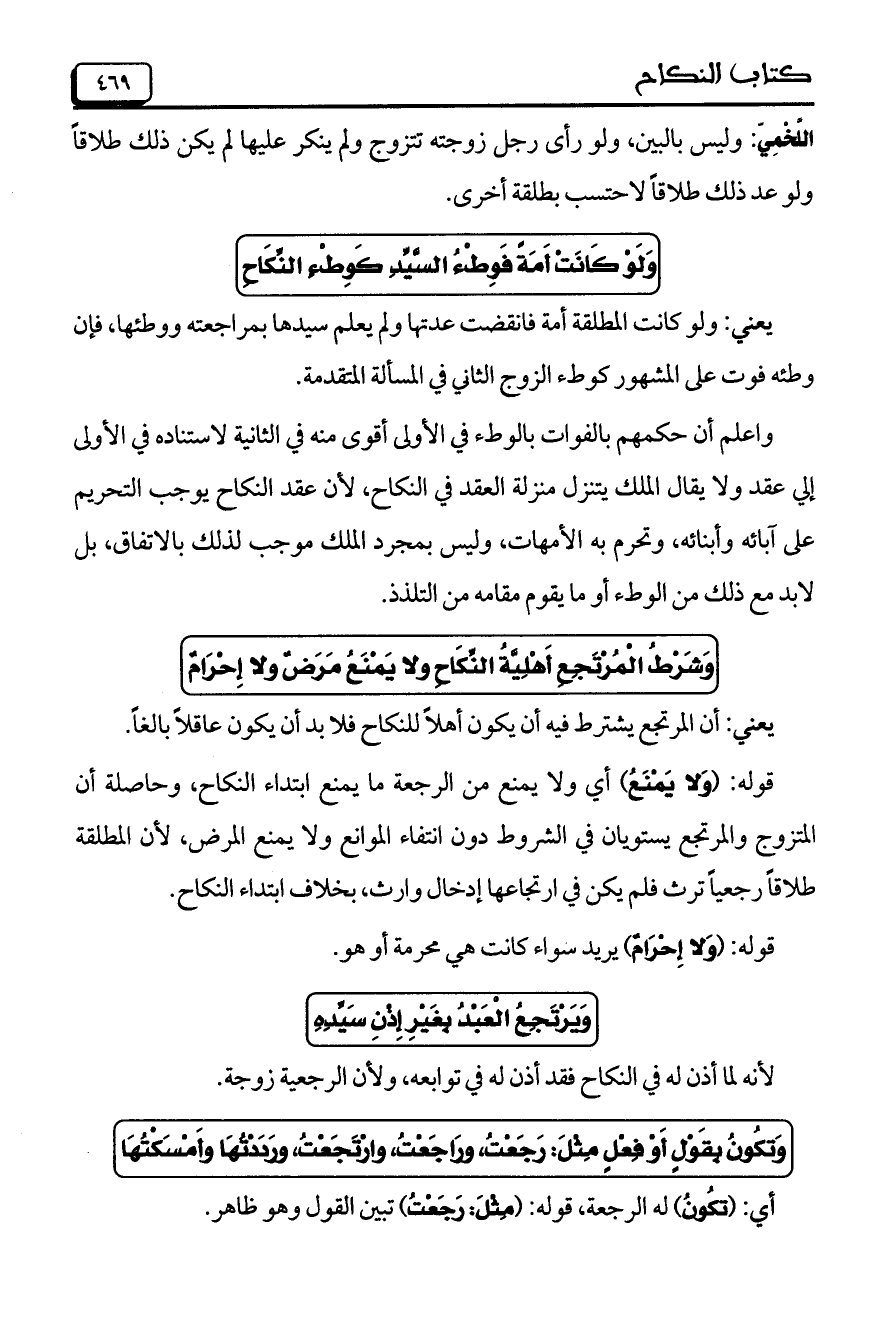 كتاب النكاح
٤٦٩
اللَّخْمِيّ: وليس بالبين، ولو رأى رجل زوجته تتزوج ولم ينكر عليها لم يكن ذلك طلاقاً
ولو عد ذلك طلاقاً لاحتسب بطلقة أخرى.
وَلَوْ كَانَتْ أَمَةً فَوِطْءُ السَّيِّدِ كَوِطْءِ النِّكَاحِ
يعني: ولو كانت المطلقة أمة فانقضت عدتها ولم يعلم سيدها بمراجعته ووطئها، فإن
وطئه فوت على المشهور كوطء الزوج الثاني في المسألة المتقدمة.
واعلم أن حكمهم بالفوات بالوطء في الأولى أقوى منه في الثانية لاستناده في الأولى
إلي عقد ولا يقال الملك يتنزل منزلة العقد في النكاح، لأن عقد النكاح يوجب التحريم
على آبائه وأبنائه، وتحرم به الأمهات، وليس بمجرد الملك موجب لذلك بالاتفاق، بل
لابد مع ذلك من الوطء أو ما يقوم مقامه من التلذذ.
وَشَرْطُ الْمُرْتَجِعِ أَهْلِيَّةُ النِّكَاحِ ولا يَمْنَعُ مَرَضٌ ولا إِحْرَامٌ
يعني: أن المرتجع يشترط فيه أن يكون أهلاً للنكاح فلا بد أن يكون عاقلاً بالغاً.
قوله: (وَلا يَمْنَعُ) أي ولا يمنع من الرجعة ما يمنع ابتداء النكاح، وحاصلة أن
المتزوج والمرتجع يستويان في الشروط دون انتفاء الموانع ولا يمنع المرض، لأن المطلقة
طلاقاً رجعياً ترث فلم يكن في ارتجاعها إدخال وارث، بخلاف ابتداء النكاح.
قوله: (وَلا إِحْرَامٌ) يريد سواء كانت هي محرمة أو هو.
وَيَرْتَجِعُ الْعَبْدُ بِغَيْرِ إِذْنِ سَيِّدِهِ
لأنه لما أذن له في النكاح فقد أذن له في توابعه، ولأن الرجعية زوجة.
وَتَكُونُ بِقَوْلٍ أَوْ فِعْلٍ مِثْلَ: رَجَعْتُ، ورَاجَعْتُ، وارْتَجَعْتُ، ورَدَدْتُهَا وأَمْسَكْتُهَا
أي: (تَكُونُ) له الرجعة، قوله: (مِثْلَ: رَجَعْتُ) تبين القول وهو ظاهر.